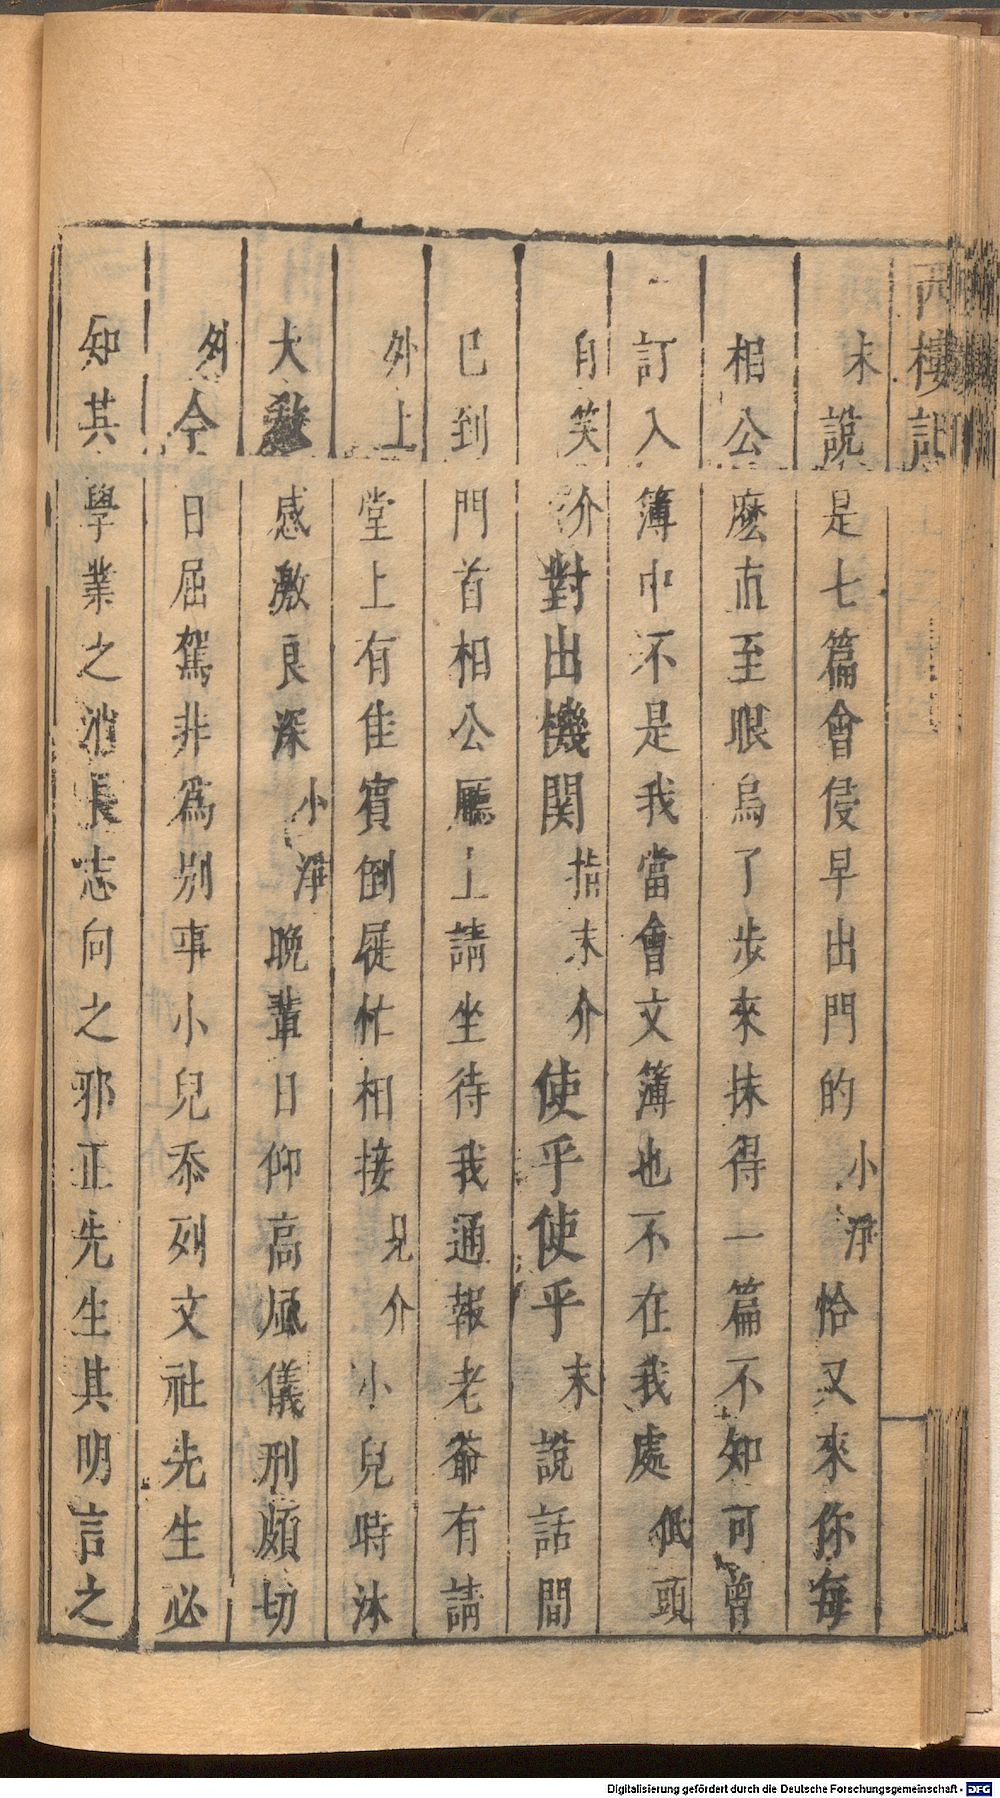 西樓記
末說是七篇會侵早出門的小淨恰又來你每
相公麼直至眼烏了步來抹得一篇不知可曾
訂入簿中不是我當會文簿也不在我處低頭
自笑介對出機関指末介使乎使乎末說話間
已到門首相公廳上請坐待我通報老爺有請
外上堂上有佳賓倒屣忙相接見介小兒時沐
大教感激良深小淨晚輩日仰高風儀刑頗切
外今日屈駕非爲別事小兒忝列文社先生必
知其學業之消長志向之邪正先生其明言之
Digitalisierung gefördert durch die Deutsche Forschungsgemeinschaft - DFG